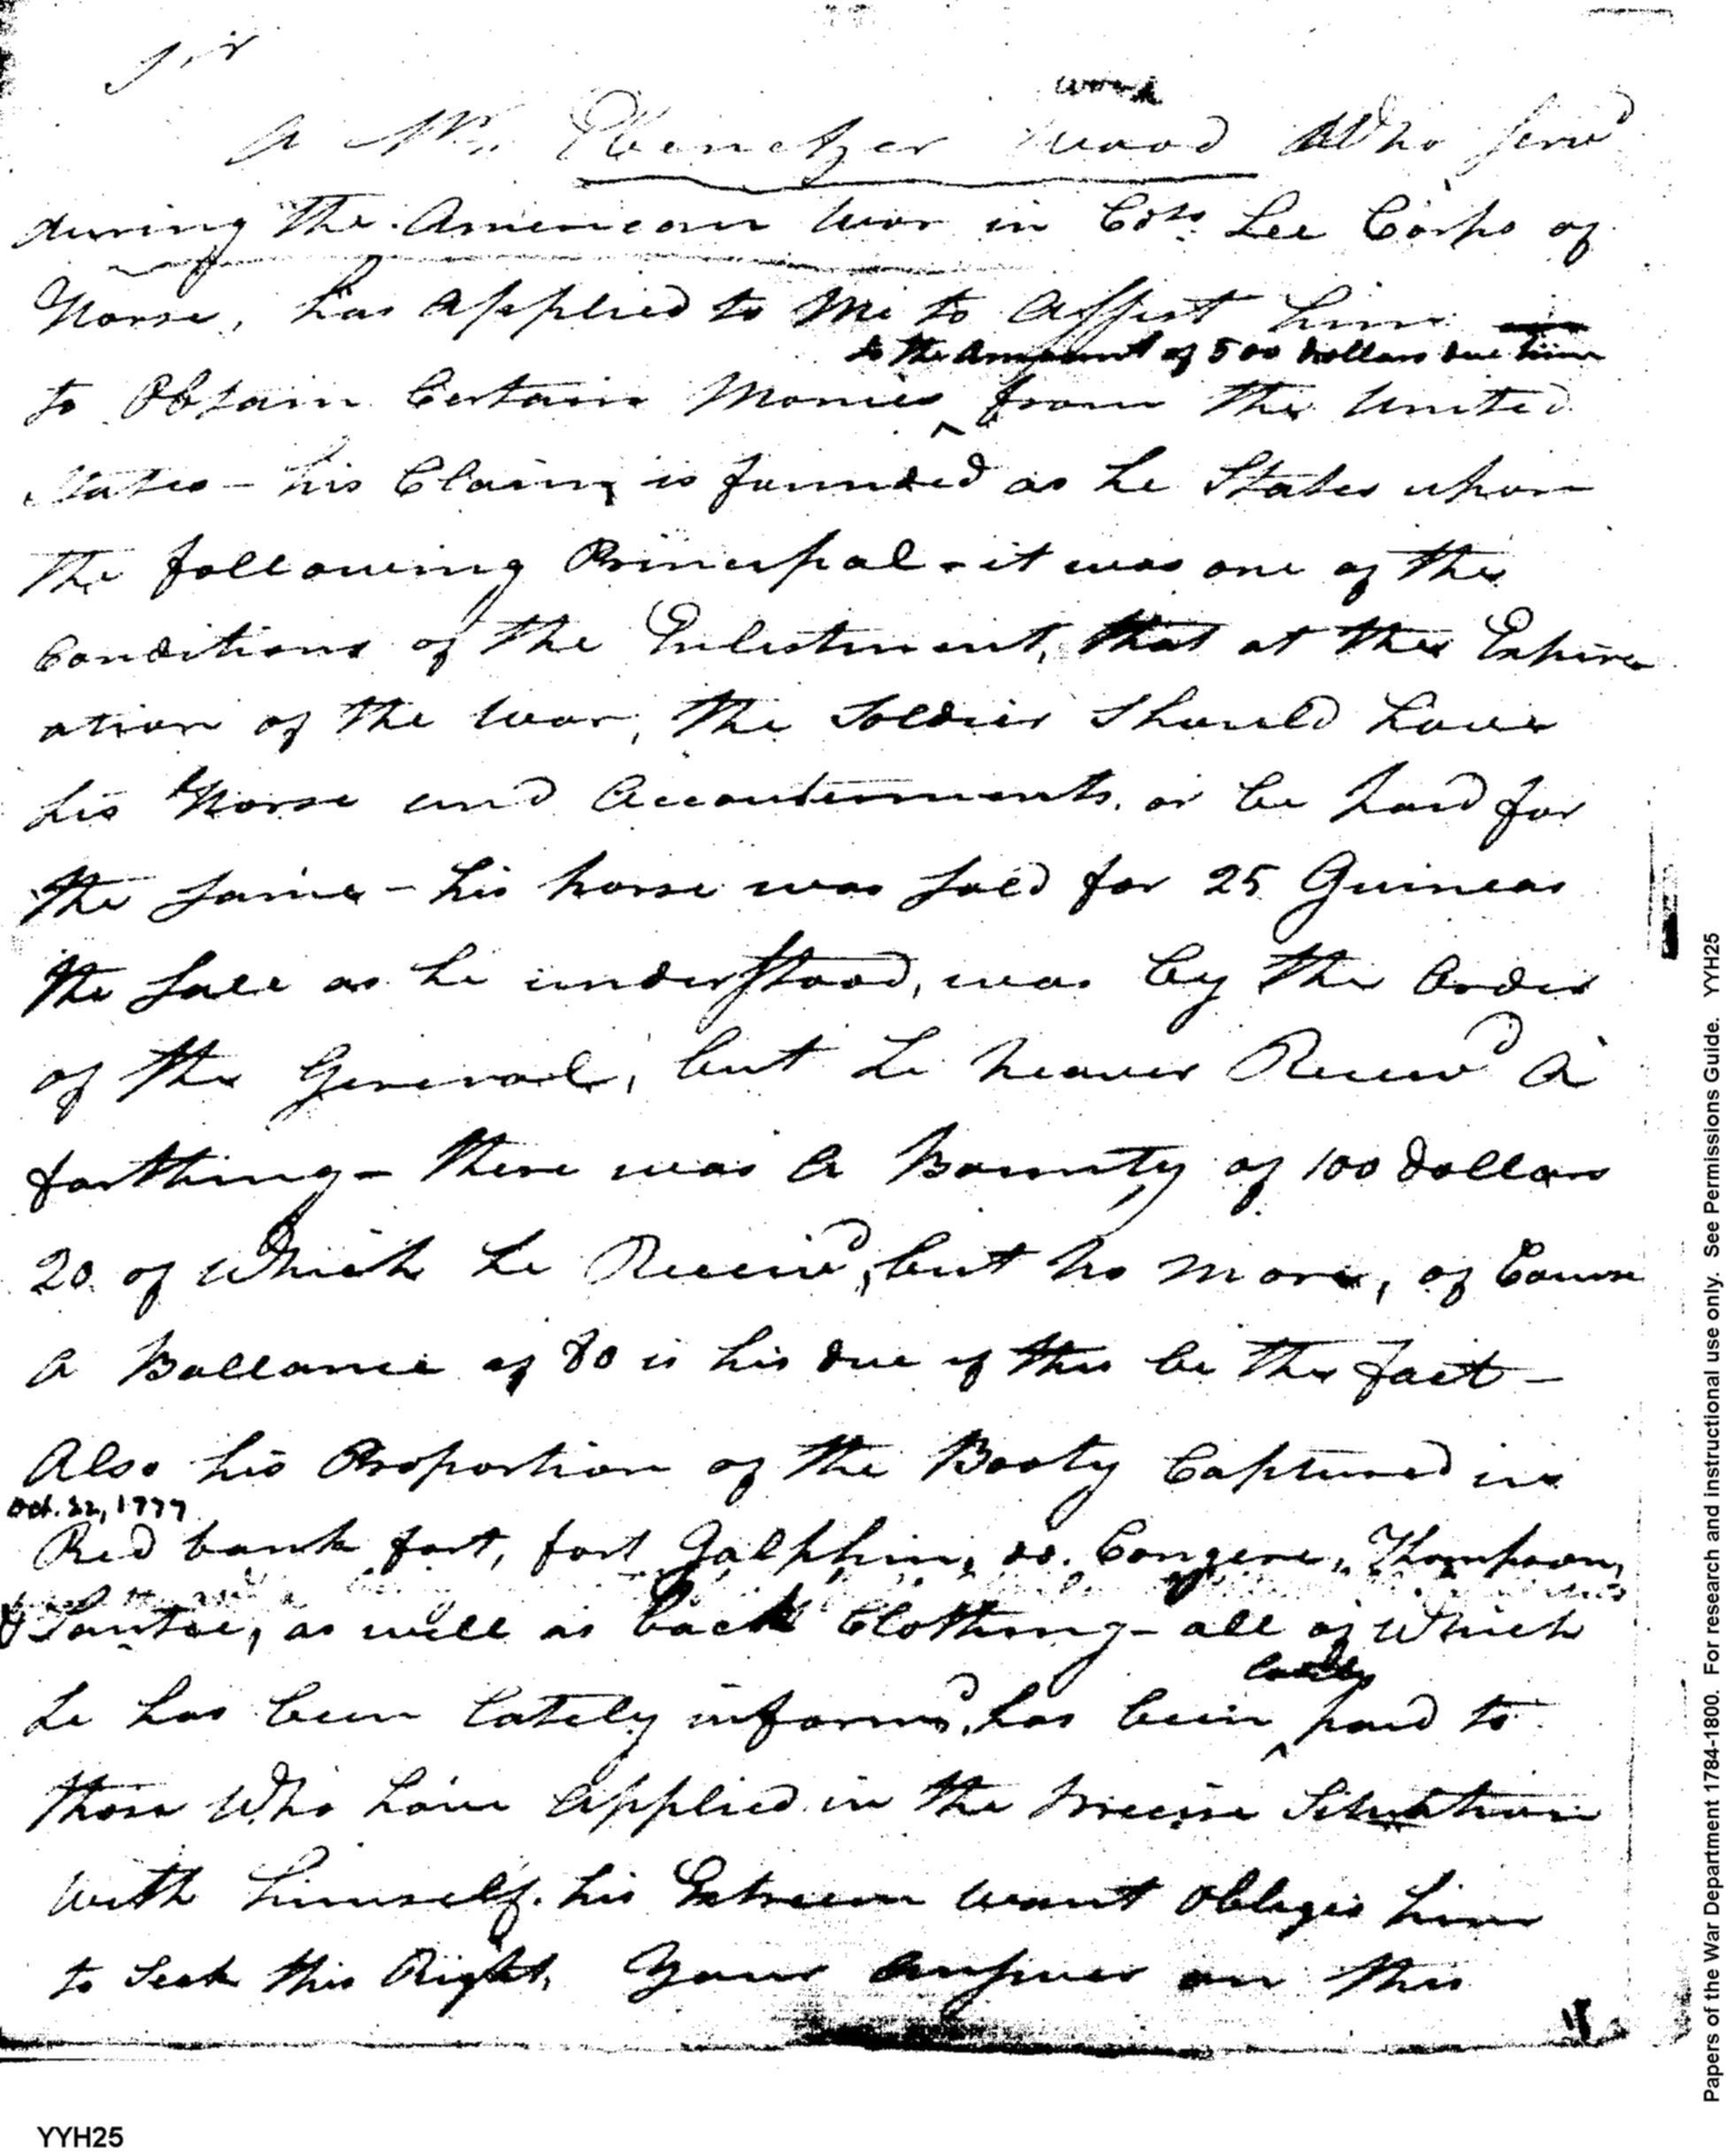 Sir
A Mr. Ebenetzer Wood Who serv'd
during the American War in Colo. Lee Corps of
Horse, has applied to Me to Assist him
to the Amount of 500 dollars due him
to Obtain Certain Monies ^ from the United
States - his Claim is founded as he States upon
the following Principal - it was one of the
Conditions of the Enlistment, that at the Expire
ation of the War, the Soldier Should have
his Horse and Accoutrements, or be paid for
the same - his horse was sold for 25 Guineas
the sale as he understood, was by the Order
of the General, but he neaver Receiv'd A
farthing - there was A Bounty of 100 dollars
20 of Which he Receiv'd, but no more, of Course
A Ballance of 80 is his due if this be the fact -
Also his Proportion of the Booty Captured in
Oct. 22, 1777
Red bank fort, fort Galphin, do. Congere, Thompson,
& Santee, as well as back Clothing - all of Which
lately
he has been lately inform'd, has been ^ paid to
those Who have applied in the Precise Situation
With himself. his Extreem Want Obliges him
to Seek this Right, Your Answer on this
YYH25
Papers of the War Department 1784-1800. For research and instructional use only. See Permissions Guide. YYH25